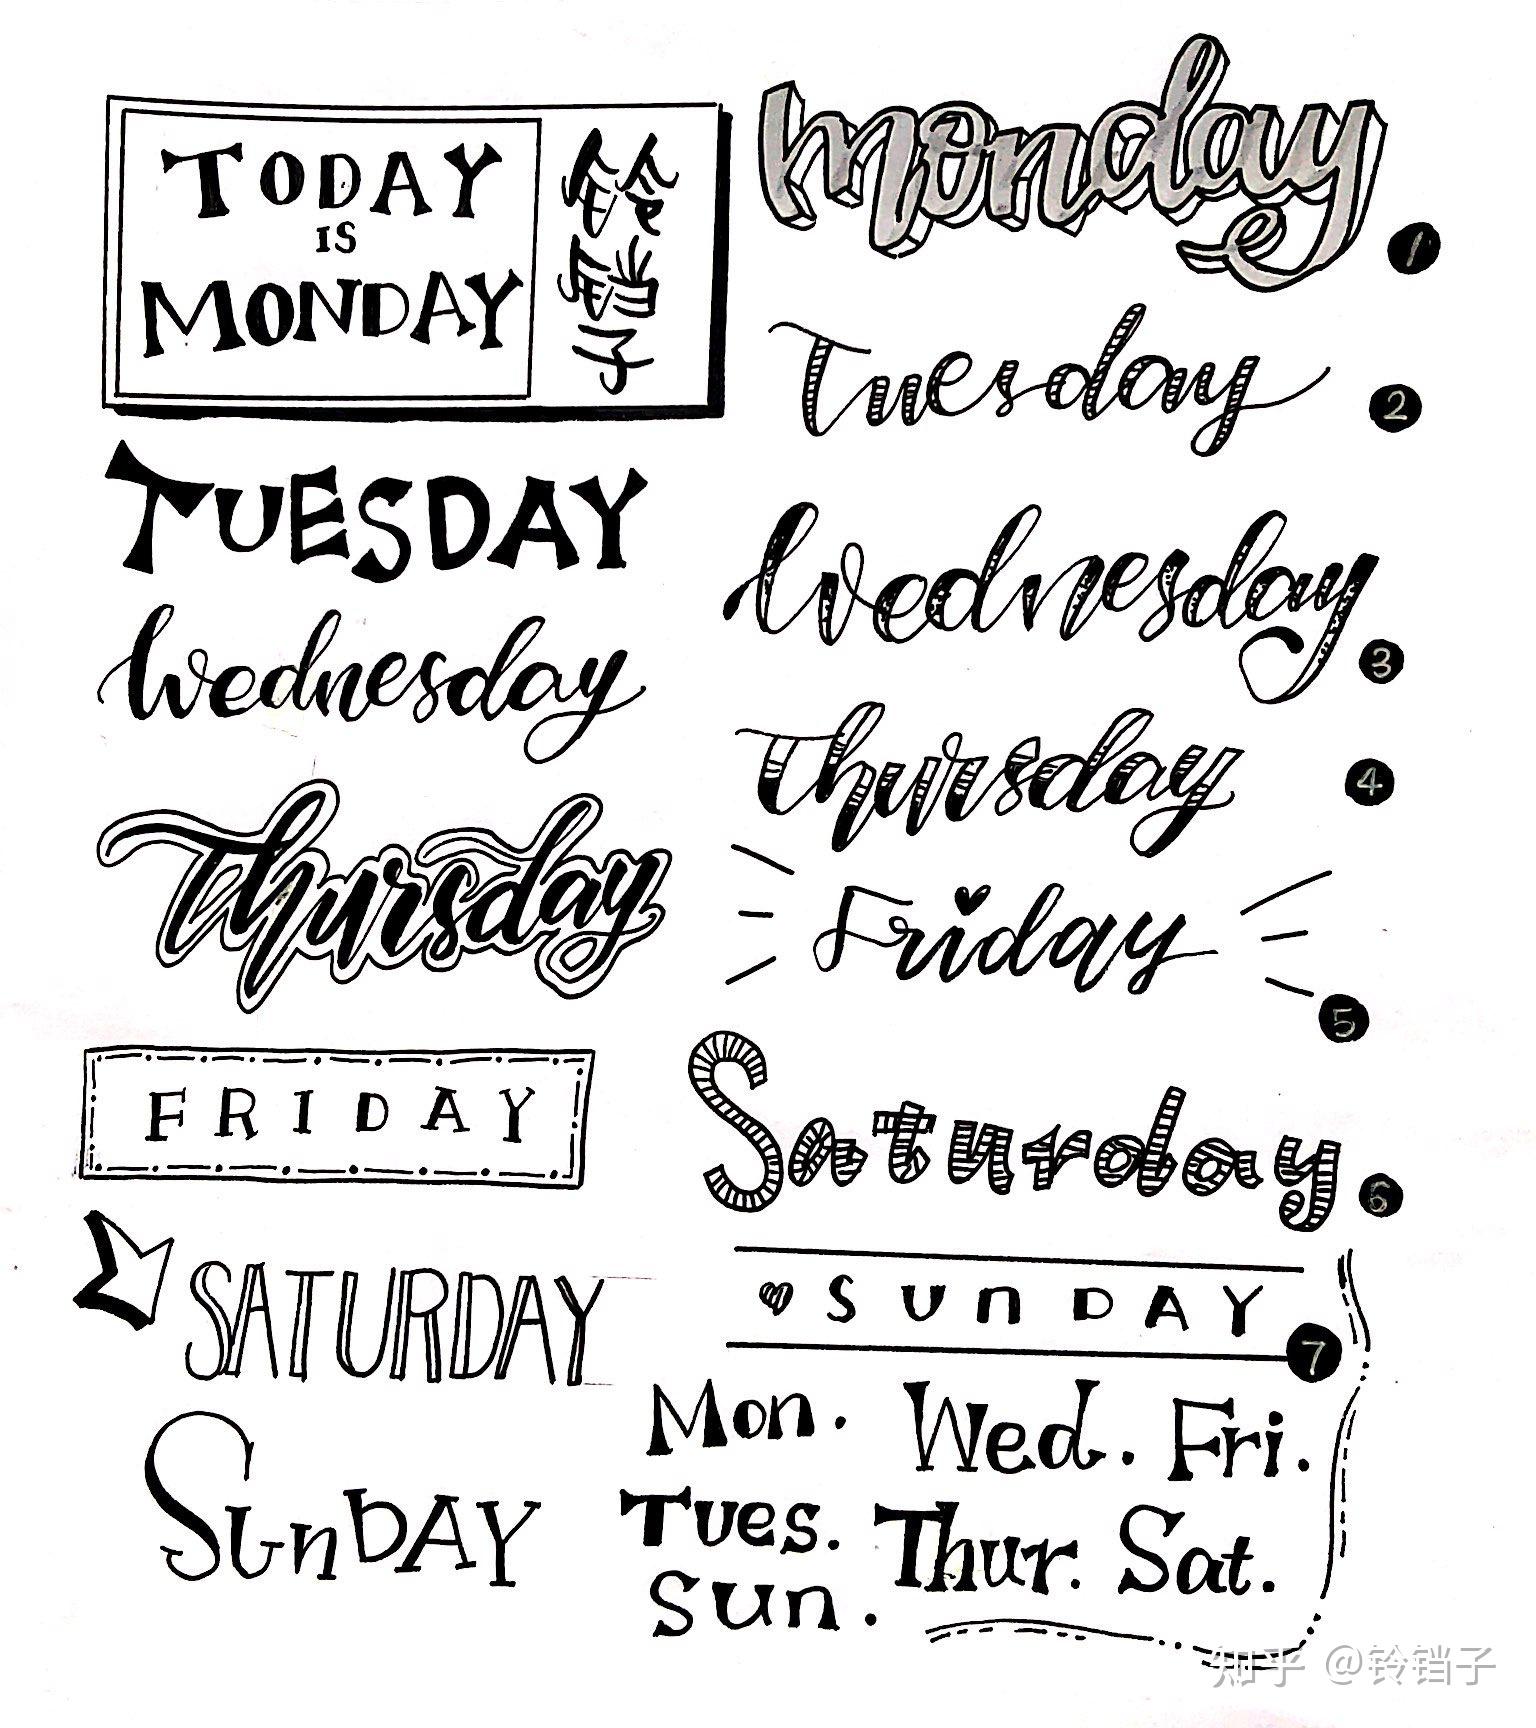 TODAY
IS
MONDAY
铃铛子
TUESDAY
Wednesday
Thursday
FRIDAY
SATURDAY
SunDAY
monday
1
Tuesday
2
Wednesday
3
Thursday
4
Friday
5
Saturday
6
SUnDAY
7
Mon. Wed. Fri.
Tues. Thur. Sat.
Sun.
知乎 @铃铛子